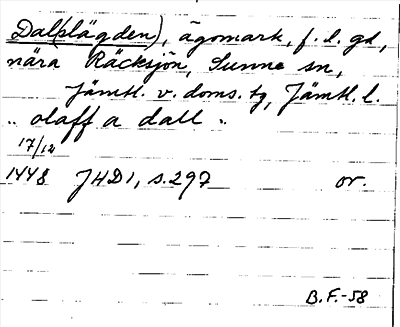 Dal(plägden), ägomark, f. l. gd,
nära Räcksjön, Sunne sn,
Jämtl. v. doms. tg, Jämtl. l.
" olaff a dall "
17/12
1448 JHD1, s. 297 or.
B.F.-58